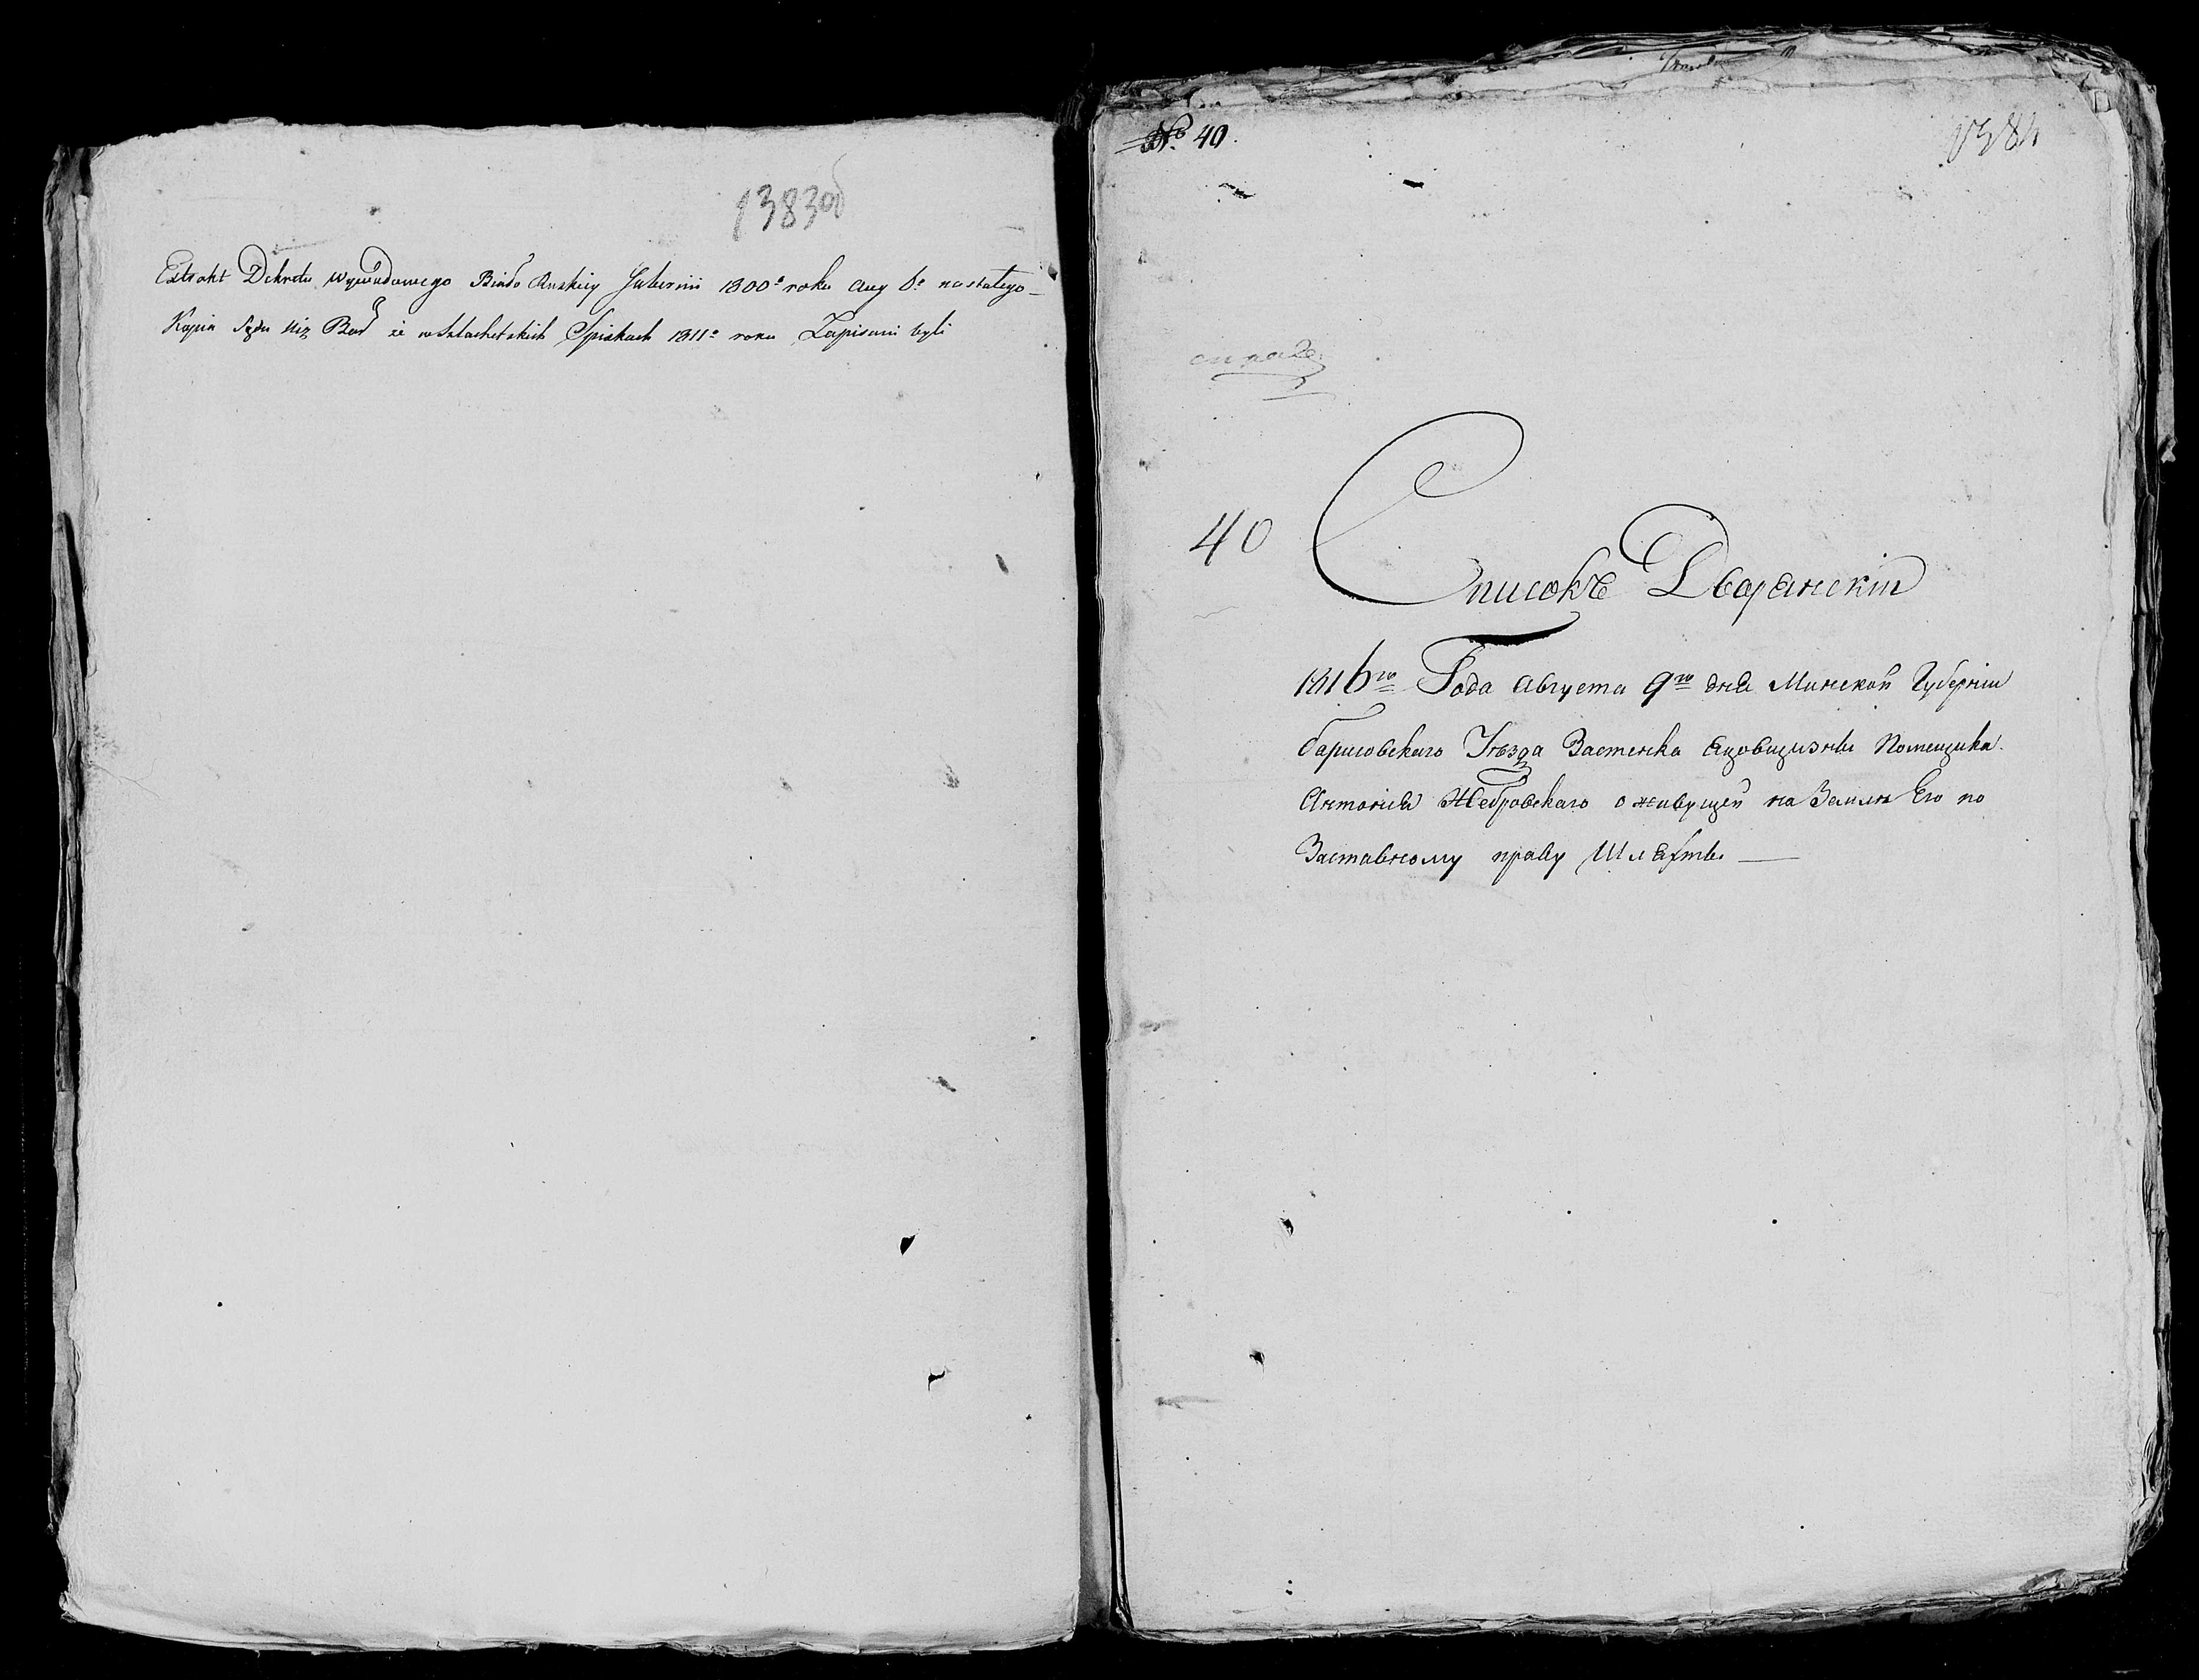 1383об
Extrakt Dekretu Wywodowego Biało Ruskiey Gubernii 1800º roku Aug 6º nastałego
Kopia Sądu Niz Bor że w Szlachetskich Spiskach 1811º roku Zapisani byli
№ 40.
1384
40
Списокъ Дворянскiй
1816го Года Августа 9го дня Минской Губернiи
Борисовскаго Уѣзда Застенка Яцовщизны Помещика
Антонiя Жебровскаго о живущей на Землѣ Его по
Заставному праву Шляхты